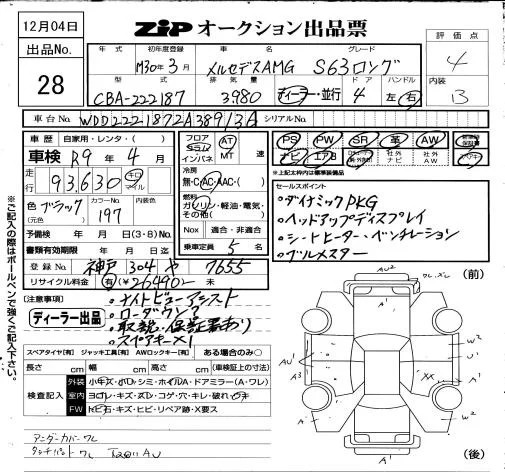 12月04日
ZiP オークション出品票
出品No.
28
評価点
4
内装
B
年式 初年度登録 車名 グレード
M30年3月 メルセデスAMG S63ロング
型式 排気量 ドア ハンドル
CBA-222187 3980 ディーラー・並行 4 左 右
車台No. シリアルNo.
車歴 自家用・レンタ・( )
車検 R9年4月
走行 93,630 キロ マイル
色 ブラック (元色) カラーNo. 197 内装色
予備検 年 月 日(3・8)No.
書類有効期限 年 月 日迄
登録No. 神戸 304 や 7655
リサイクル料 (有)(¥26490) 未
フロア コラム インパネ AT MT 速
冷房 無・C・AC・AAC・( )
燃料 ガソリン・軽油・電気・その他( )
Nox 適合・非適合
乗車定員 5 名
PS PW SR 革 AW
ナビ エアB 社外ナビ 社外AW
※上記2本枠内は標準装備品
セールスポイント
・ダイナミックPKG
・ヘッドアップディスプレイ
・シートヒーター・ベンチレーション
・ブルメスター
(注意事項)
ディーラー出品
・ナイトビューアシスト
・ローダウン?
・取説・保証書あり
・スペアキー×1
スペアタイヤ[有] ジャッキ工具[有] AWロックキー[有] ある場合のみ○
長さ cm 幅 cm 高さ cm (車検証上の寸法)
検査記入
外装 小キズ・ボロ・シミ・ホイルA・ドアミラー(A・ワレ)
室内 ヨゴレ・キズ・スレ・コゲ・穴・キレ・破れ・ウキ
FW トビ石・キズ・ヒビ・リペア跡・X要ス
アンダーカバーワレ
※ご記入の際はボールペンで強くご記入下さい。
(前)
AU2
W2
U1
AU1
A3
XX
A1
W2
A1
(後)